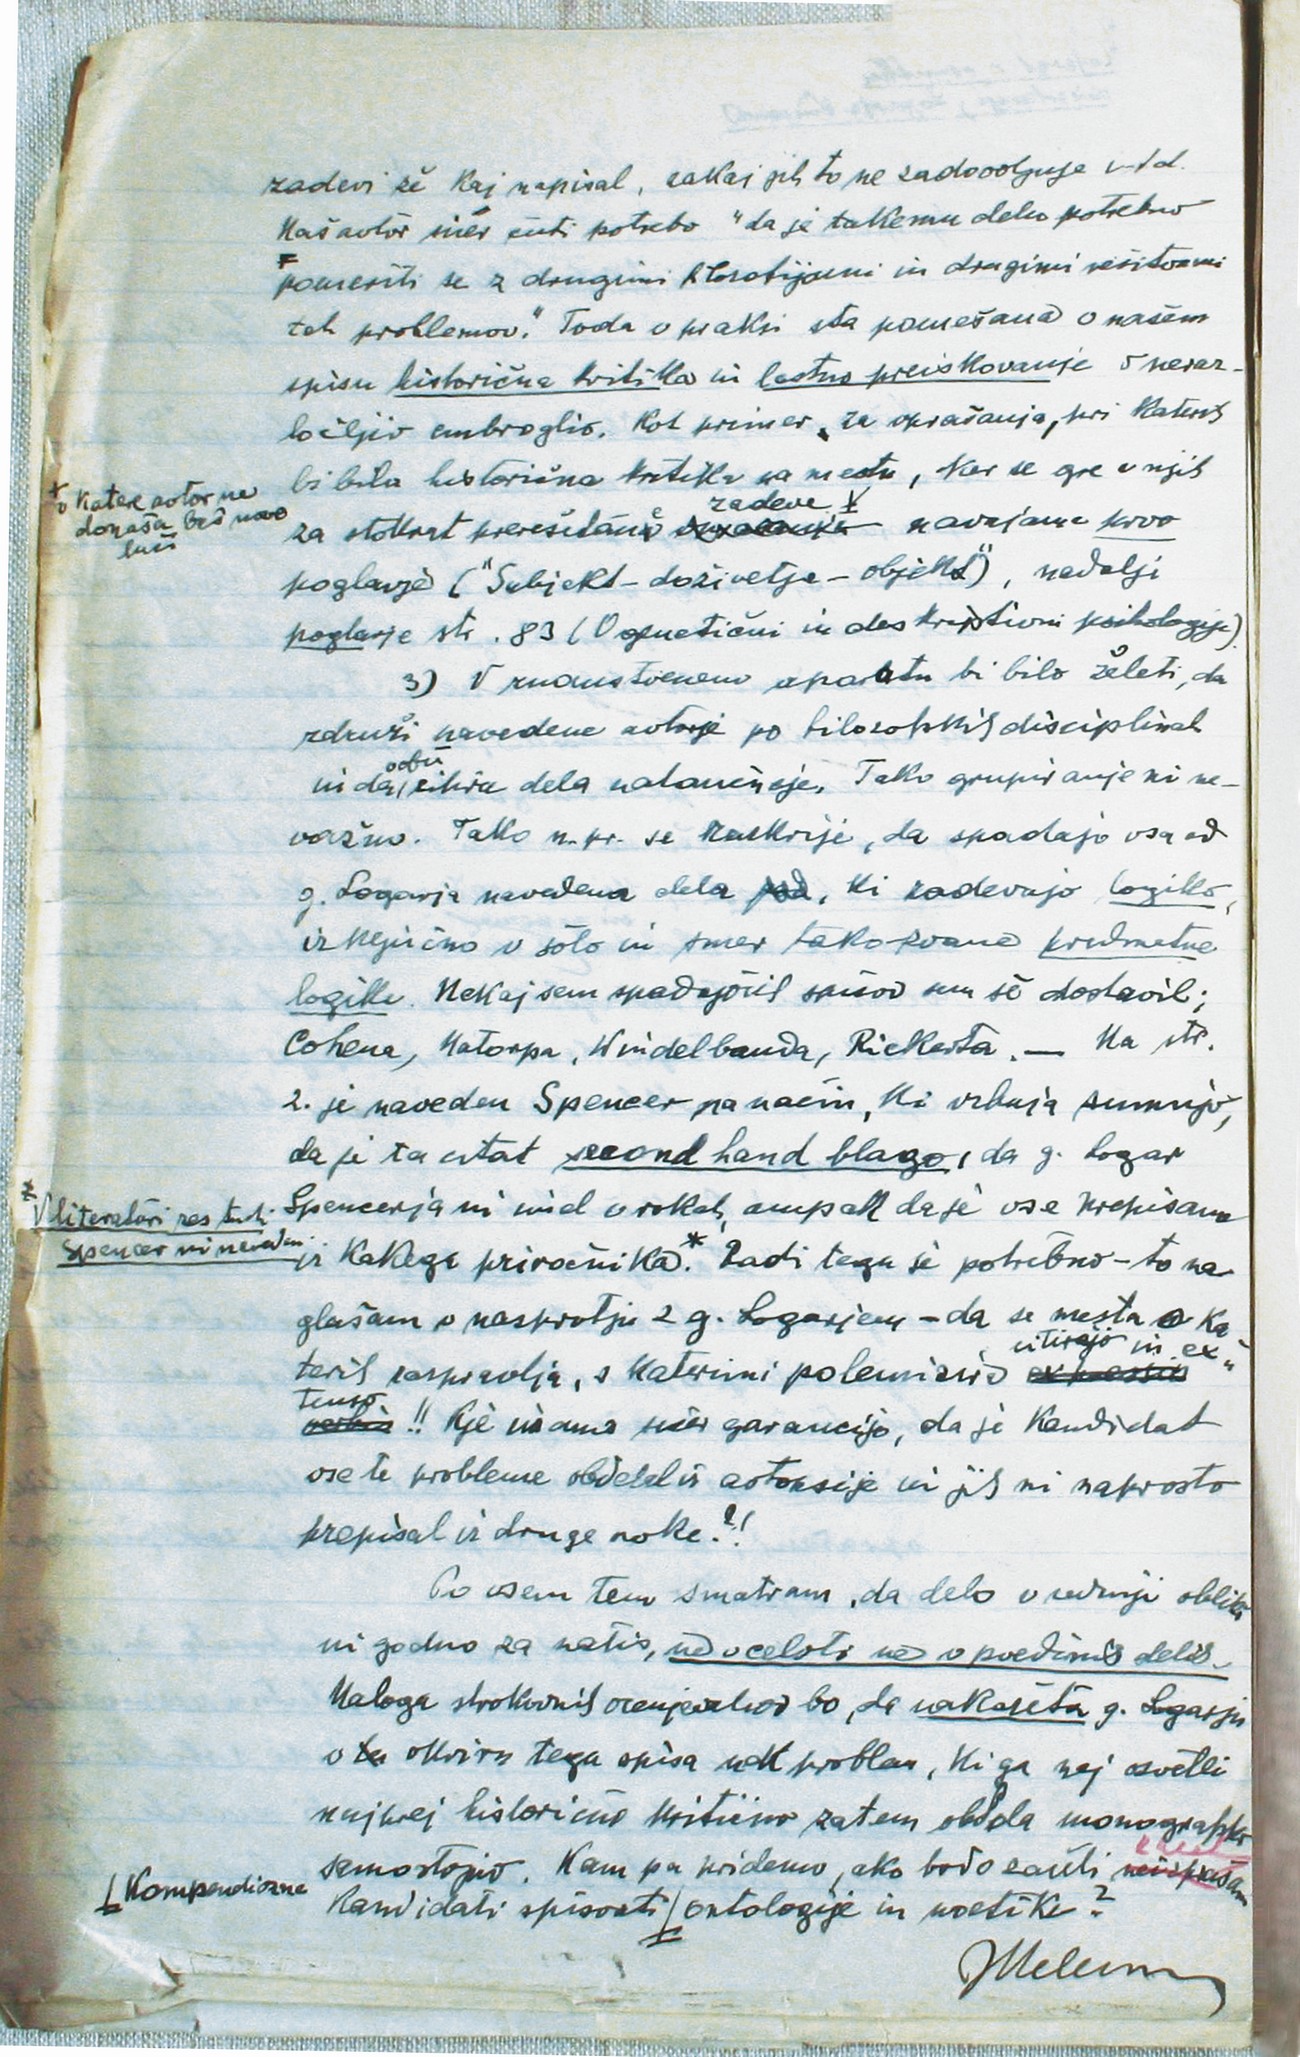 zadevi že kaj napisal, zakaj jih to ne zadovoljuje i-t-d.
Naš avtor sicer čuti potrebo "da je takemu delu potrebno
pomeriti se z drugimi filozofijami in drugimi rešitvami
teh problemov." Toda v praksi sta pomešana v našem
spisu historična kritika in lastno preiskovanje v neraz-
ločljiv embroglio. Kot primer za vprašanja, pri katerih
bi bila historična kritika na mestu, ker se gre v njih
* v katere avtor ne
donaša baš nove
luči
zadeve
za stokrat prerešetane navajamo prvo
poglavje ("Subjekt - doživetje - objekt"), nadalje
poglavje str. 83 (O genetični in deskriptivni psihologiji).
3) V znanstvenem aparatu bi bilo želeti, da
združi navedene avtorje po filozofskih disciplinah
in da citira dela natančneje. Tako grupiranje ni ne-
važno. Tako n.pr. se razkrije, da spadajo vsa od
g. Logarja navedena dela, ki zadevajo logiko,
izključno v šolo in smer tako zvane predmetne
logike. Nekaj sem spadajočih spisov sem še dostavil;
Cohena, Natorpa, Windelbanda, Rickerta. — Na str.
2. je naveden Spencer na način, ki vzbuja sumnjo,
da je ta citat second hand blago, da g. Logar
Spencerja ni imel v rokah, ampak da je vse prepisano
* V literaturi res tudi
Spencer ni naveden.
iz kakega priročnika.* Radi tega je potrebno - to na-
glašam v nasprotju z g. Logarjem - da se mesta o ka-
citirajo in ex-
terih razpravlja, s katerimi polemizira
tenso
!! Kje imamo sicer garancijo, da je kandidat
vse te probleme obdelal iz avtopsije in jih ni naprosto
prepisal iz druge roke.?!
Po vsem tem smatram, da delo v sedanji obliki
ni godno za natis, ne v celoti ne v poedinih delih.
Naloga strokovnih ocenjevalcev bo, da nakaže ta g. Logarju
v okviru tega spisa nek problem, ki ga naj osvetli
najprej historično kritično zatem obdela monografsko
samostojno. Kam pa pridemo, ako bodo začeli
⌊ Kompendiozne
kandidati spisovati / ontologije in noetike?